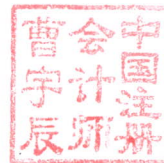 中国注册
会计师
曹宇辰